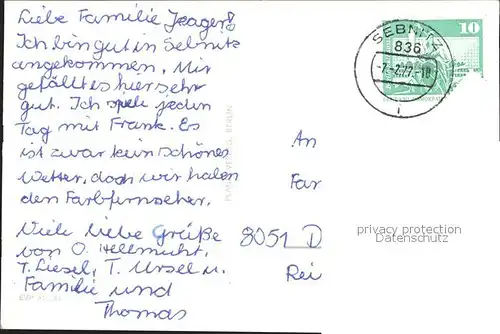 Liebe Familie Jeager!
Ich bin gut in Sebnitz
angekommen. Mir
gefällt es hier sehr
gut. Ich spiele jeden
Tag mit Frank. Es
ist zwar kein schönes
Wetter, doch wir haben
den Farbfernseher.
Viele liebe Grüße
von O. Hellmuth,
T. Liesel, T. Ursel u.
Familie und
Thomas
SEBNITZ
836
10
An
Far
8051 D
Rei
privacy protection
Datenschutz